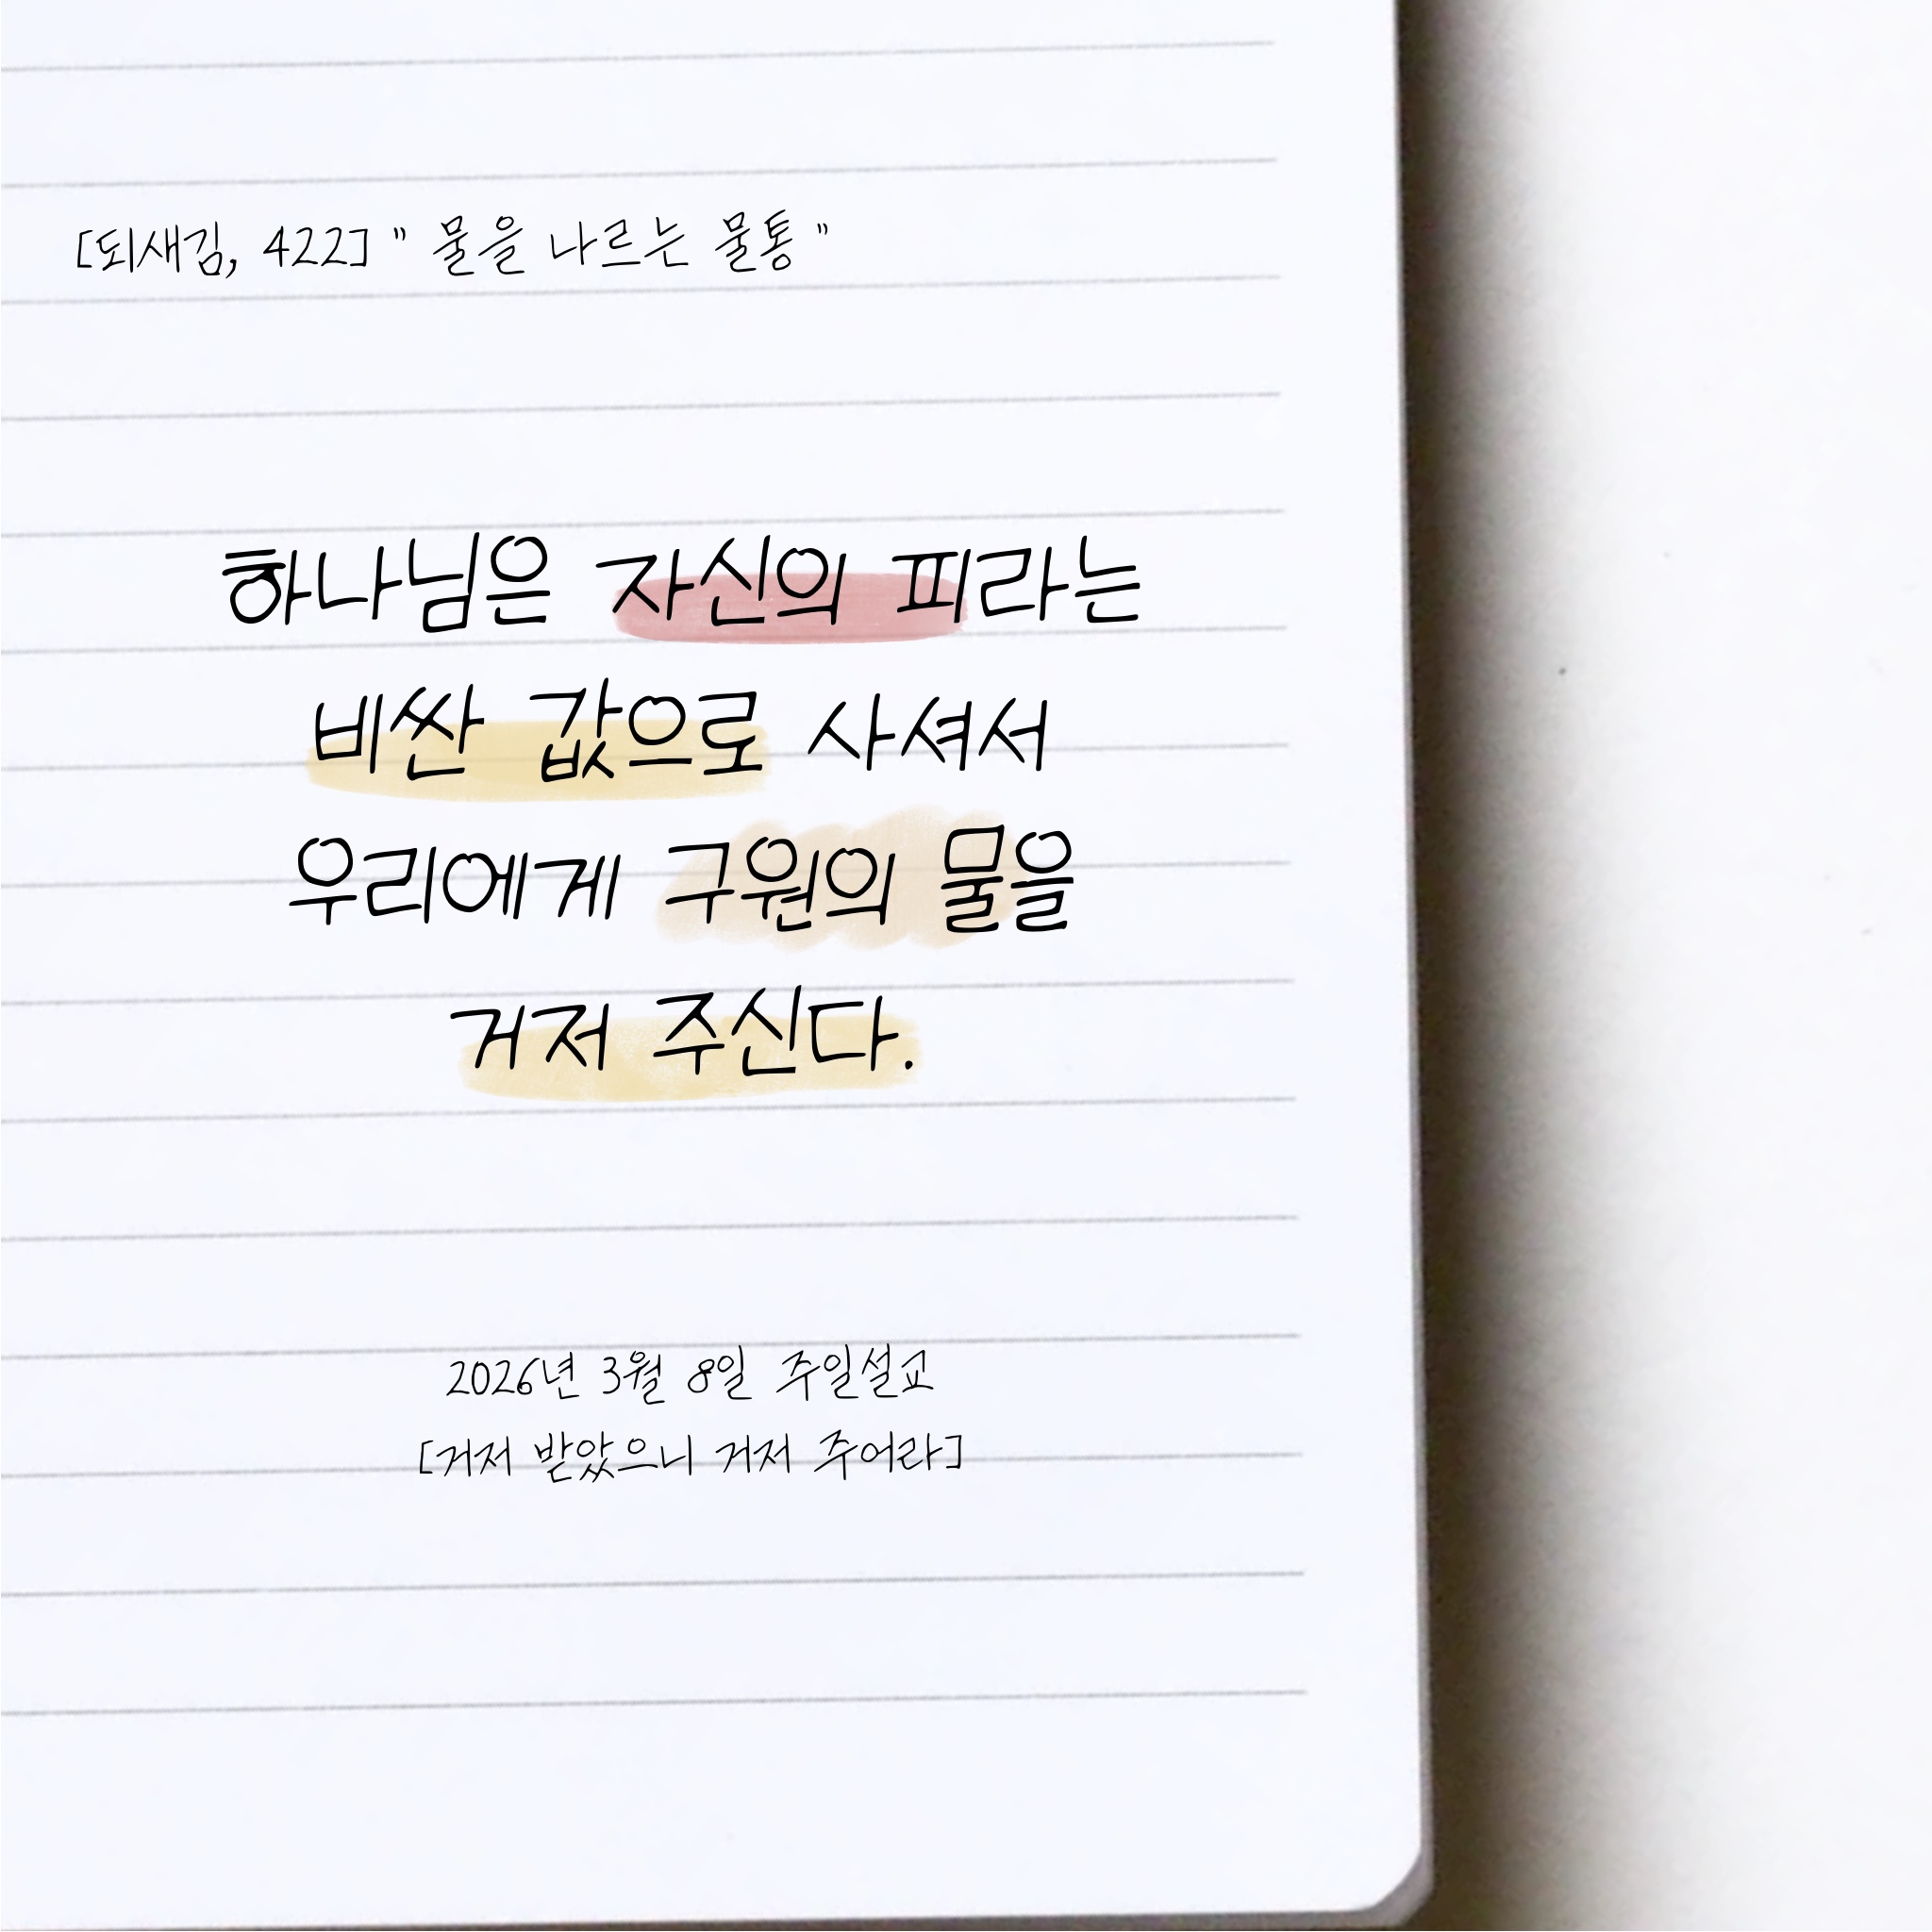 [되새김, 422] " 물을 나르는 물통 "
하나님은 자신의 피라는
비싼 값으로 사셔서
우리에게 구원의 물을
거저 주신다.
2026년 3월 8일 주일설교
[거저 받았으니 거저 주어라]